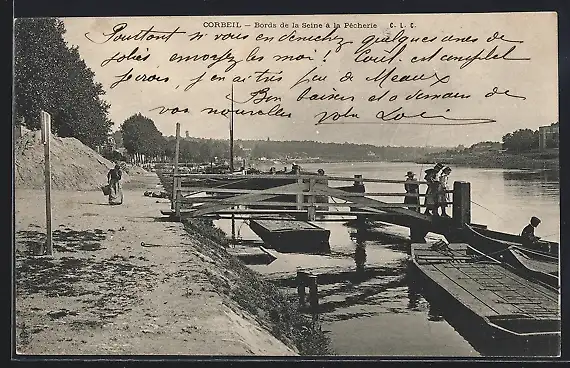 CORBEIL – Bords de la Seine à la Pêcherie C. L. C.
Pourtant si vous en dénichez quelques unes de
jolies envoyez les moi! Tout est complet
je crois, j'en ai très peu de Meaux
Bon baisers et à demain de
vos nouvelles